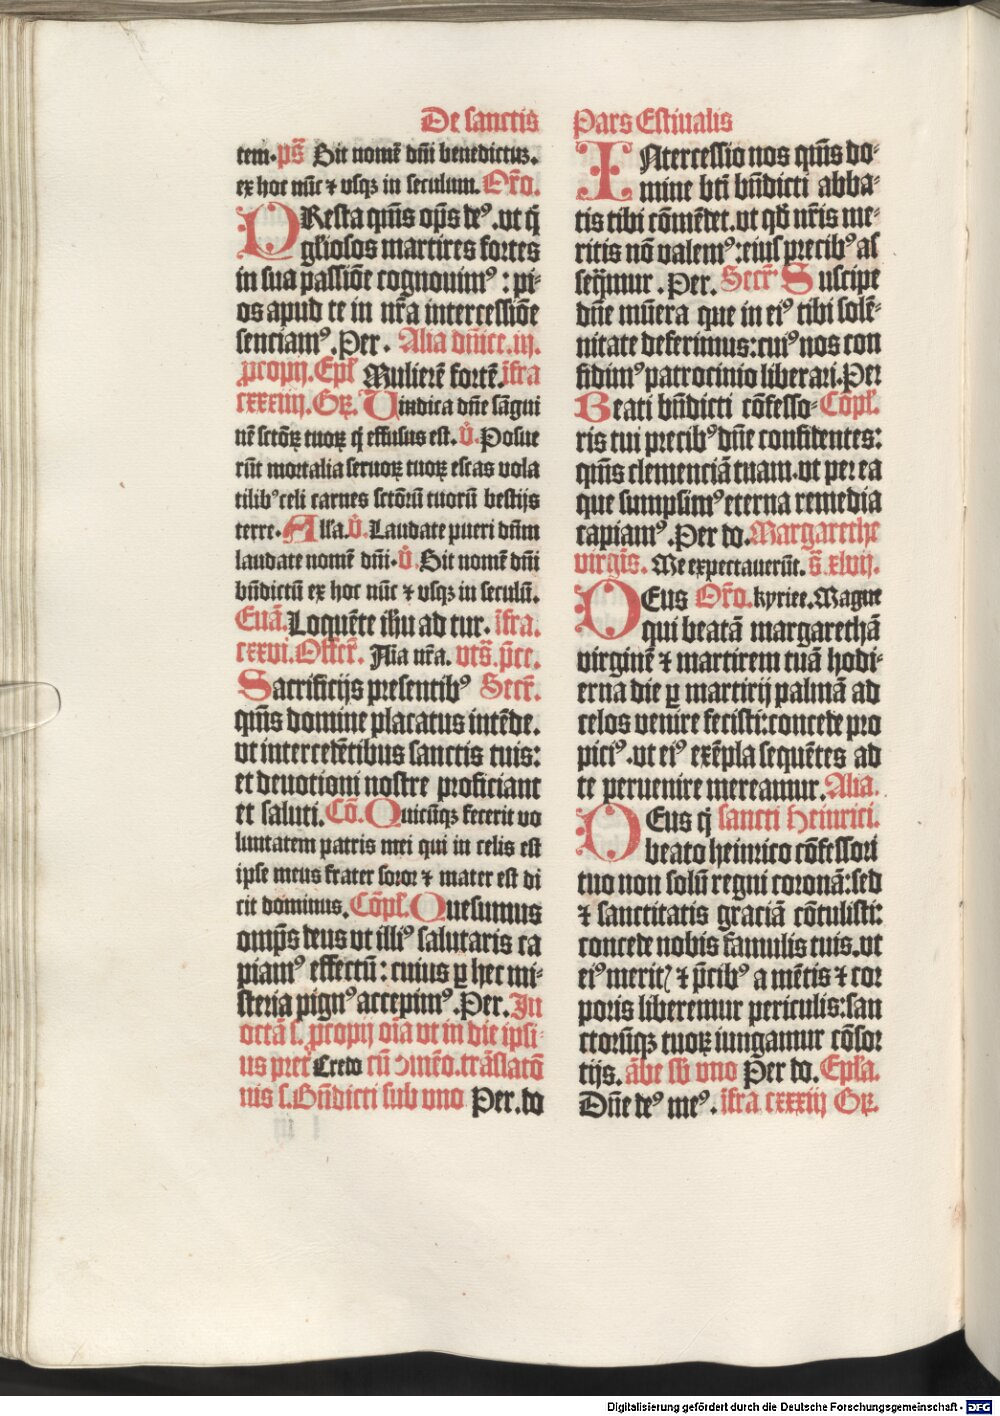 De sanctis
tem. ps̄ Sit nomē dn̄i benedictuꝫ.
ex hoc nūc ⁊ vsqꝫ in seculum. Or̄o.
PResta qm̄s op̄s deꝰ .vt q̄
gl̄iosos martires fortes
in sua passiōe cognouimꝰ : pi-
os apud te in nr̄a intercessiōe
senciamꝰ .Per. Alia dn̄ice.iij.
ꝓcopij. Epl̄ Mulierē fortē. īfra
cxxxiiij. Gꝝ. Uindica dn̄e sāgui
nē sctōꝝ tuoꝝ q̄ effusus est. v̄. Posue
rūt mortalia seruoꝝ tuoꝝ escas vola
tilibꝰ celi carnes sctōrū tuorū bestijs
terre. Alla. v̄. Laudate pueri dn̄m
laudate nomē dn̄i. v̄. Sit nomē dn̄i
bn̄dictū ex hoc nūc ⁊ vsqꝫ in seculū.
Euā. Loquēte ih̄u ad tur. īfra.
cxxvi. Offer̄. Alia nr̄a. vts̄. p̄cc.
Sacrificijs presentibꝰ Secr̄.
qm̄s domine placatus intēde.
vt intercedētibus sanctis tuis:
et deuotioni nostre proficiant
et saluti. Cō. Quicūqꝫ fecerit vo
luntatem patris mei qui in celis est
ipse meus frater soror ⁊ mater est di
cit dominus. Cōpl̄. Quesumus
omp̄s deus vt illiꝰ salutaris ca
piamꝰ effectū: cuius ꝑ hec mi-
steria pignꝰ accepimꝰ .Per. In
octā s. ꝓcopij oīa vt in die ipsi-
us pret̄ Credo cū ꝯmēo. trāslatō
nis s. Bn̄dicti sub vno Per. do
Pars Estiualis
INtercessio nos qm̄s do-
mine bt̄i bn̄dicti abba-
tis tibi cōmēdet. vt qd̄ nr̄is me-
ritis nō valemꝰ : eiuſ precibꝰ aſ
seq̄mur .Per. Secr̄ Suscipe
dn̄e mūera que in eiꝰ tibi solē-
nitate deferimus: cuiꝰ nos con
fidimꝰ patrocinio liberari. Per
Beati bn̄dicti cōfesso- Cōpl̄.
ris tui precibꝰ dn̄e confidentes:
qm̄s clemenciā tuam. vt per ea
que sumpsimꝰ eterna remedia
capiamꝰ .Per do. Margarethe
virgīs. Me expectauerūt. s̄ xlvij.
DEus Or̄o. kyriee. Magne
qui beatā margarethā
virginē ⁊ martirem tuā hodi-
erna die ꝑ martirij palmā ad
celos venire fecisti: concede pro
piciꝰ .vt eiꝰ exēpla sequētes ad
te peruenire mereamur. Alia.
DEus q̄ sancti Heinrici.
beato heinrico cōfessori
tuo non solū regni coronā: sed
⁊ sanctitatis graciā cōtulisti:
concede nobis famulis tuis. vt
eiꝰ merit? ⁊ p̄cibꝰ a mētis ⁊ cor
poris liberemur periculis: san
ctorūqꝫ tuoꝝ iungamur cōsor
tijs. ābe sb̄ vno Per do. Epl̄a.
Dn̄e deꝰ meꝰ. īfra cxxxiij Gꝝ.
Digitalisierung gefördert durch die Deutsche Forschungsgemeinschaft - DFG